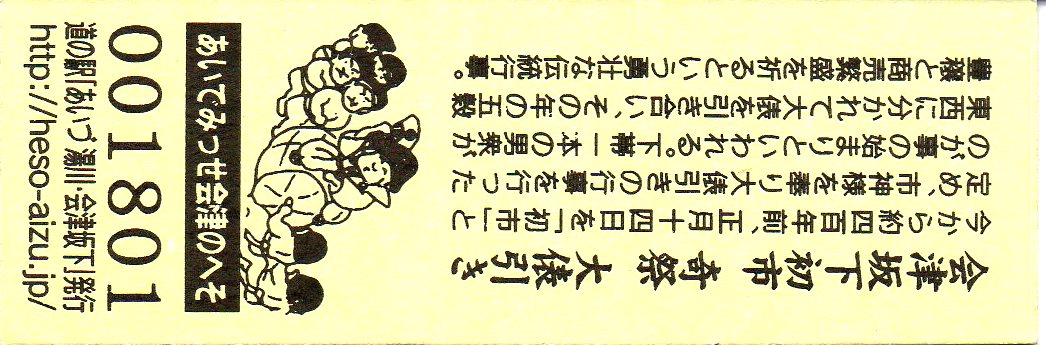 会津坂下初市　奇祭　大俵引き
今から約四百年前、正月十四日を「初市」と
定め、市神様を奉り大俵引きの行事を行った
のが事の始まりといわれる。下帯一本の男衆が
東西に分かれて大俵を引き合い、その年の五穀
豊穣と商売繁盛を祈るという勇壮な伝統行事。
あいでみっせ会津のへそ
001801
道の駅「あいづ 湯川・会津坂下」発行
http://heso-aizu.jp/